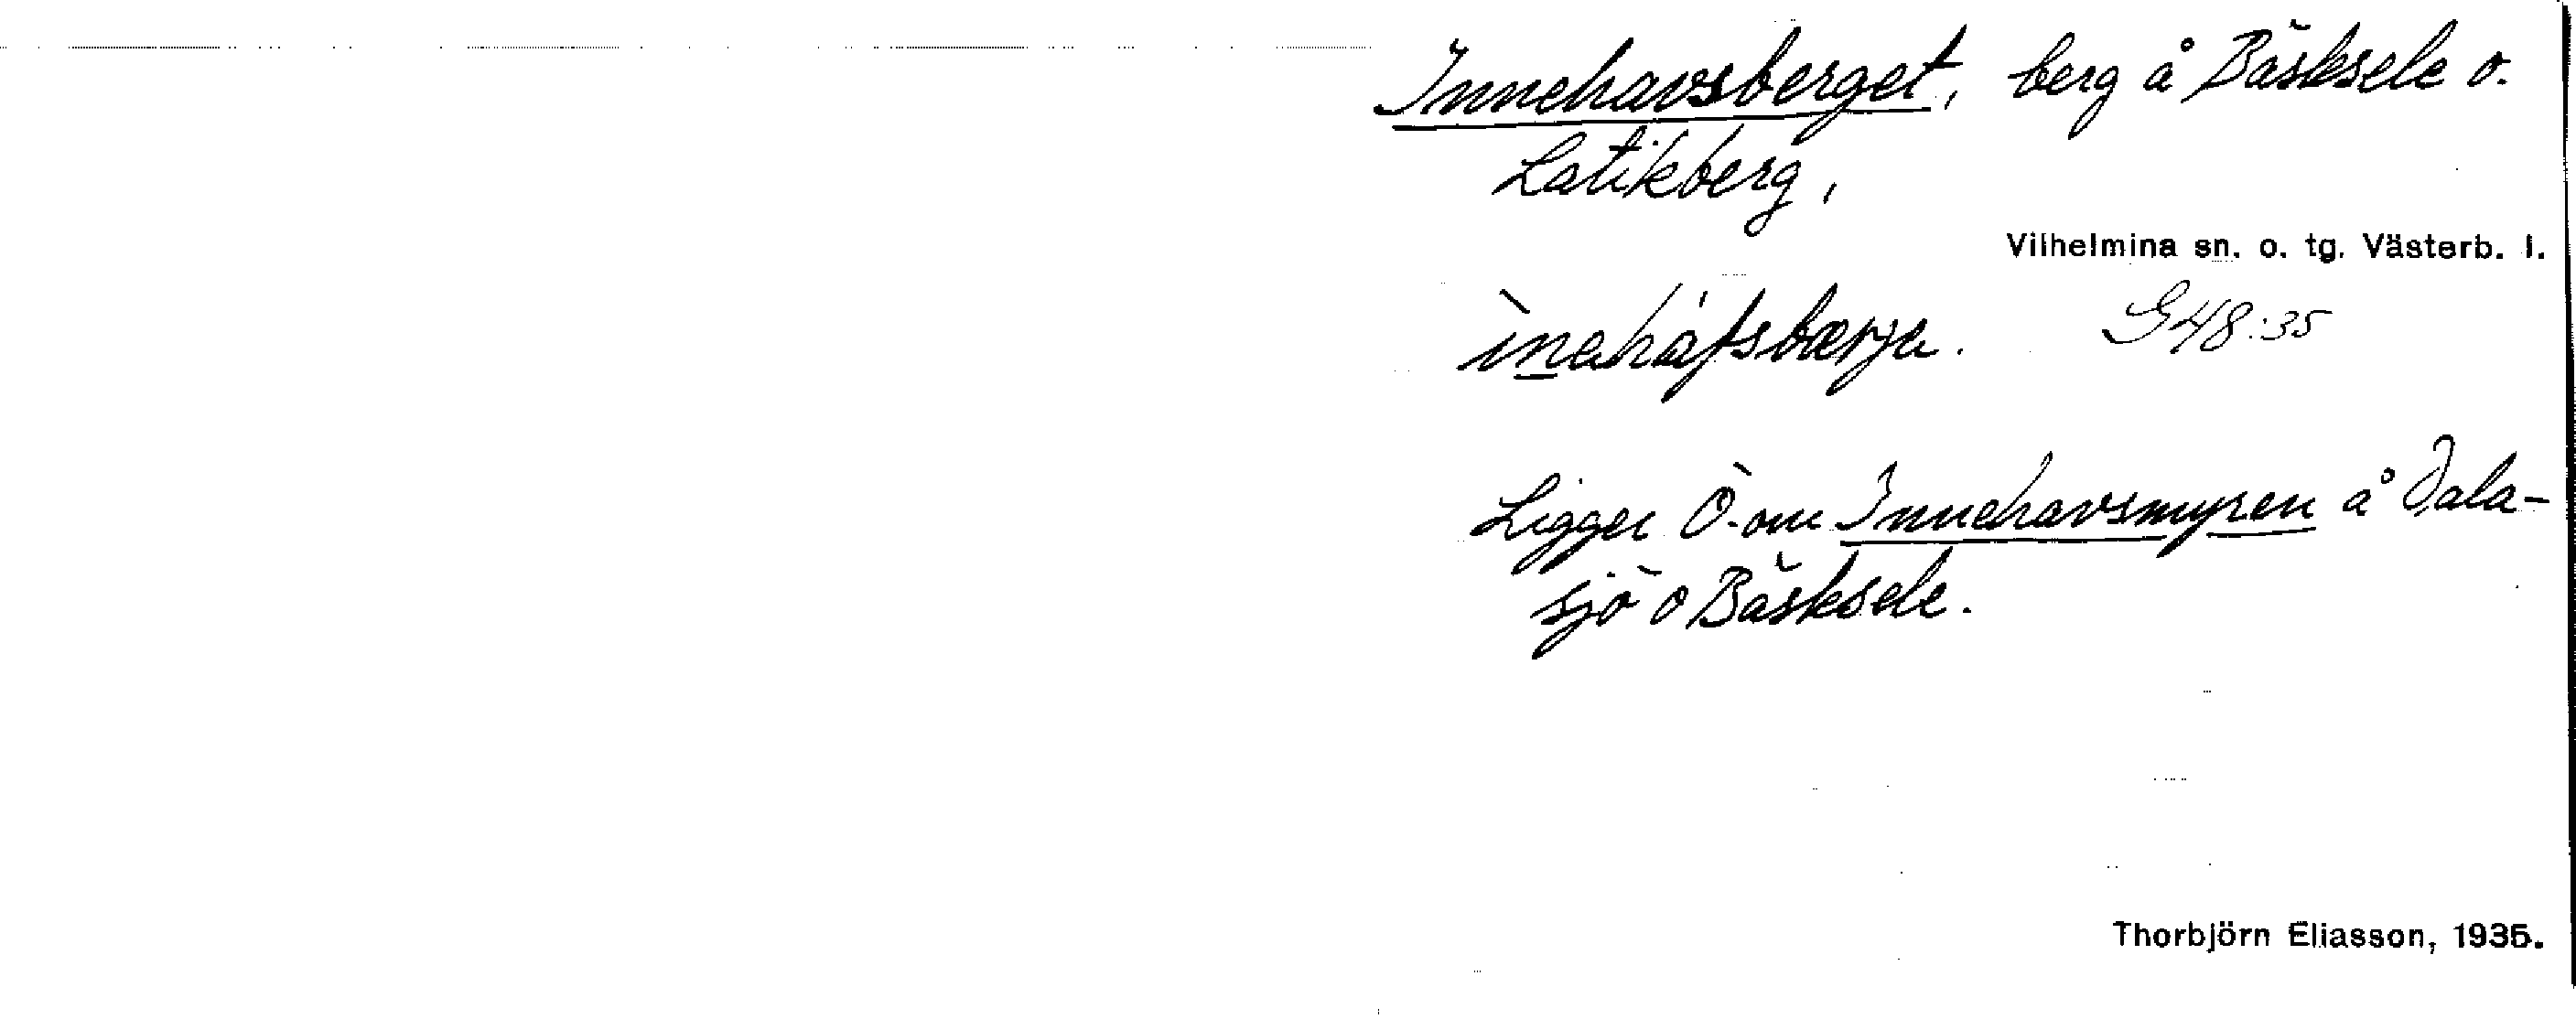 Innehavsberget, berg å Bäsksele o.
Latikberg,
Vilhelmina sn. o. tg. Västerb. l.
G48:35
Ligger Ö. om Innehavsmyren å Dala-
sjö o Bäsksele.
Thorbjörn Eliasson, 1935.